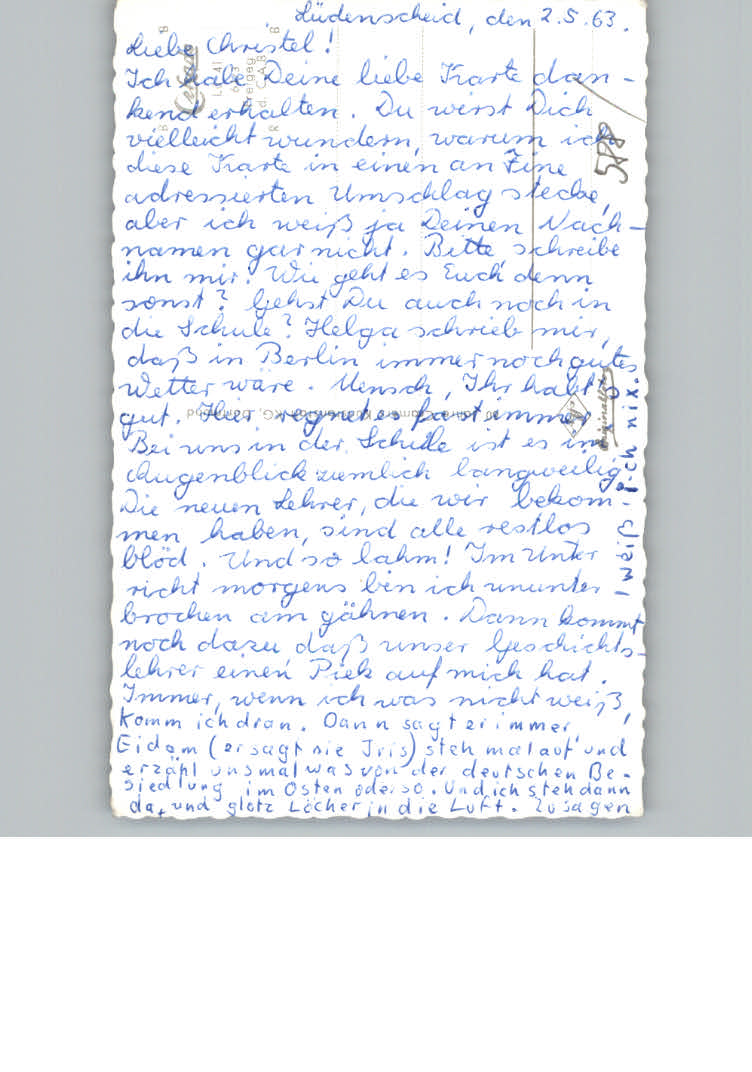 Lüdenscheid, den 2.5.63.
Liebe Christel!
Ich habe Deine liebe Karte dan-
kend erhalten. Du wirst Dich
vielleicht wundern, warum ich
diese Karte in einen an Eine
adressierten Umschlag stecke,
aber ich weiß ja Deinen Nach-
namen gar nicht. Bitte schreibe
ihn mir. Wie geht es Euch denn
sonst? Gehst Du auch noch in
die Schule? Helga schrieb mir,
daß in Berlin immer noch gutes
Wetter wäre. Mensch, Ihr habt
gut. Hier regnetes fast immer.
Bei uns in der Schule ist es im
Augenblick ziemlich langweilig.
Die neuen Lehrer, die wir bekom-
men haben, sind alle restlos
blöd. Und so lahm! Im Unter
richt morgens bin ich ununter-
brochen am gähnen. Dann kommt
noch dazu daß unser Geschichts-
lehrer einen Piek auf mich hat.
Immer, wenn ich was nicht weiß,
komm ich dran. Dann sagt er immer,
Eidam (er sagt nie Iris) steh mal auf und
erzähl uns mal was von der deutschen Be-
siedlung im Osten oder so. Und ich steh dann
da, und glotz Löcher in die Luft. Zu sagen
weiß ich nix.
588